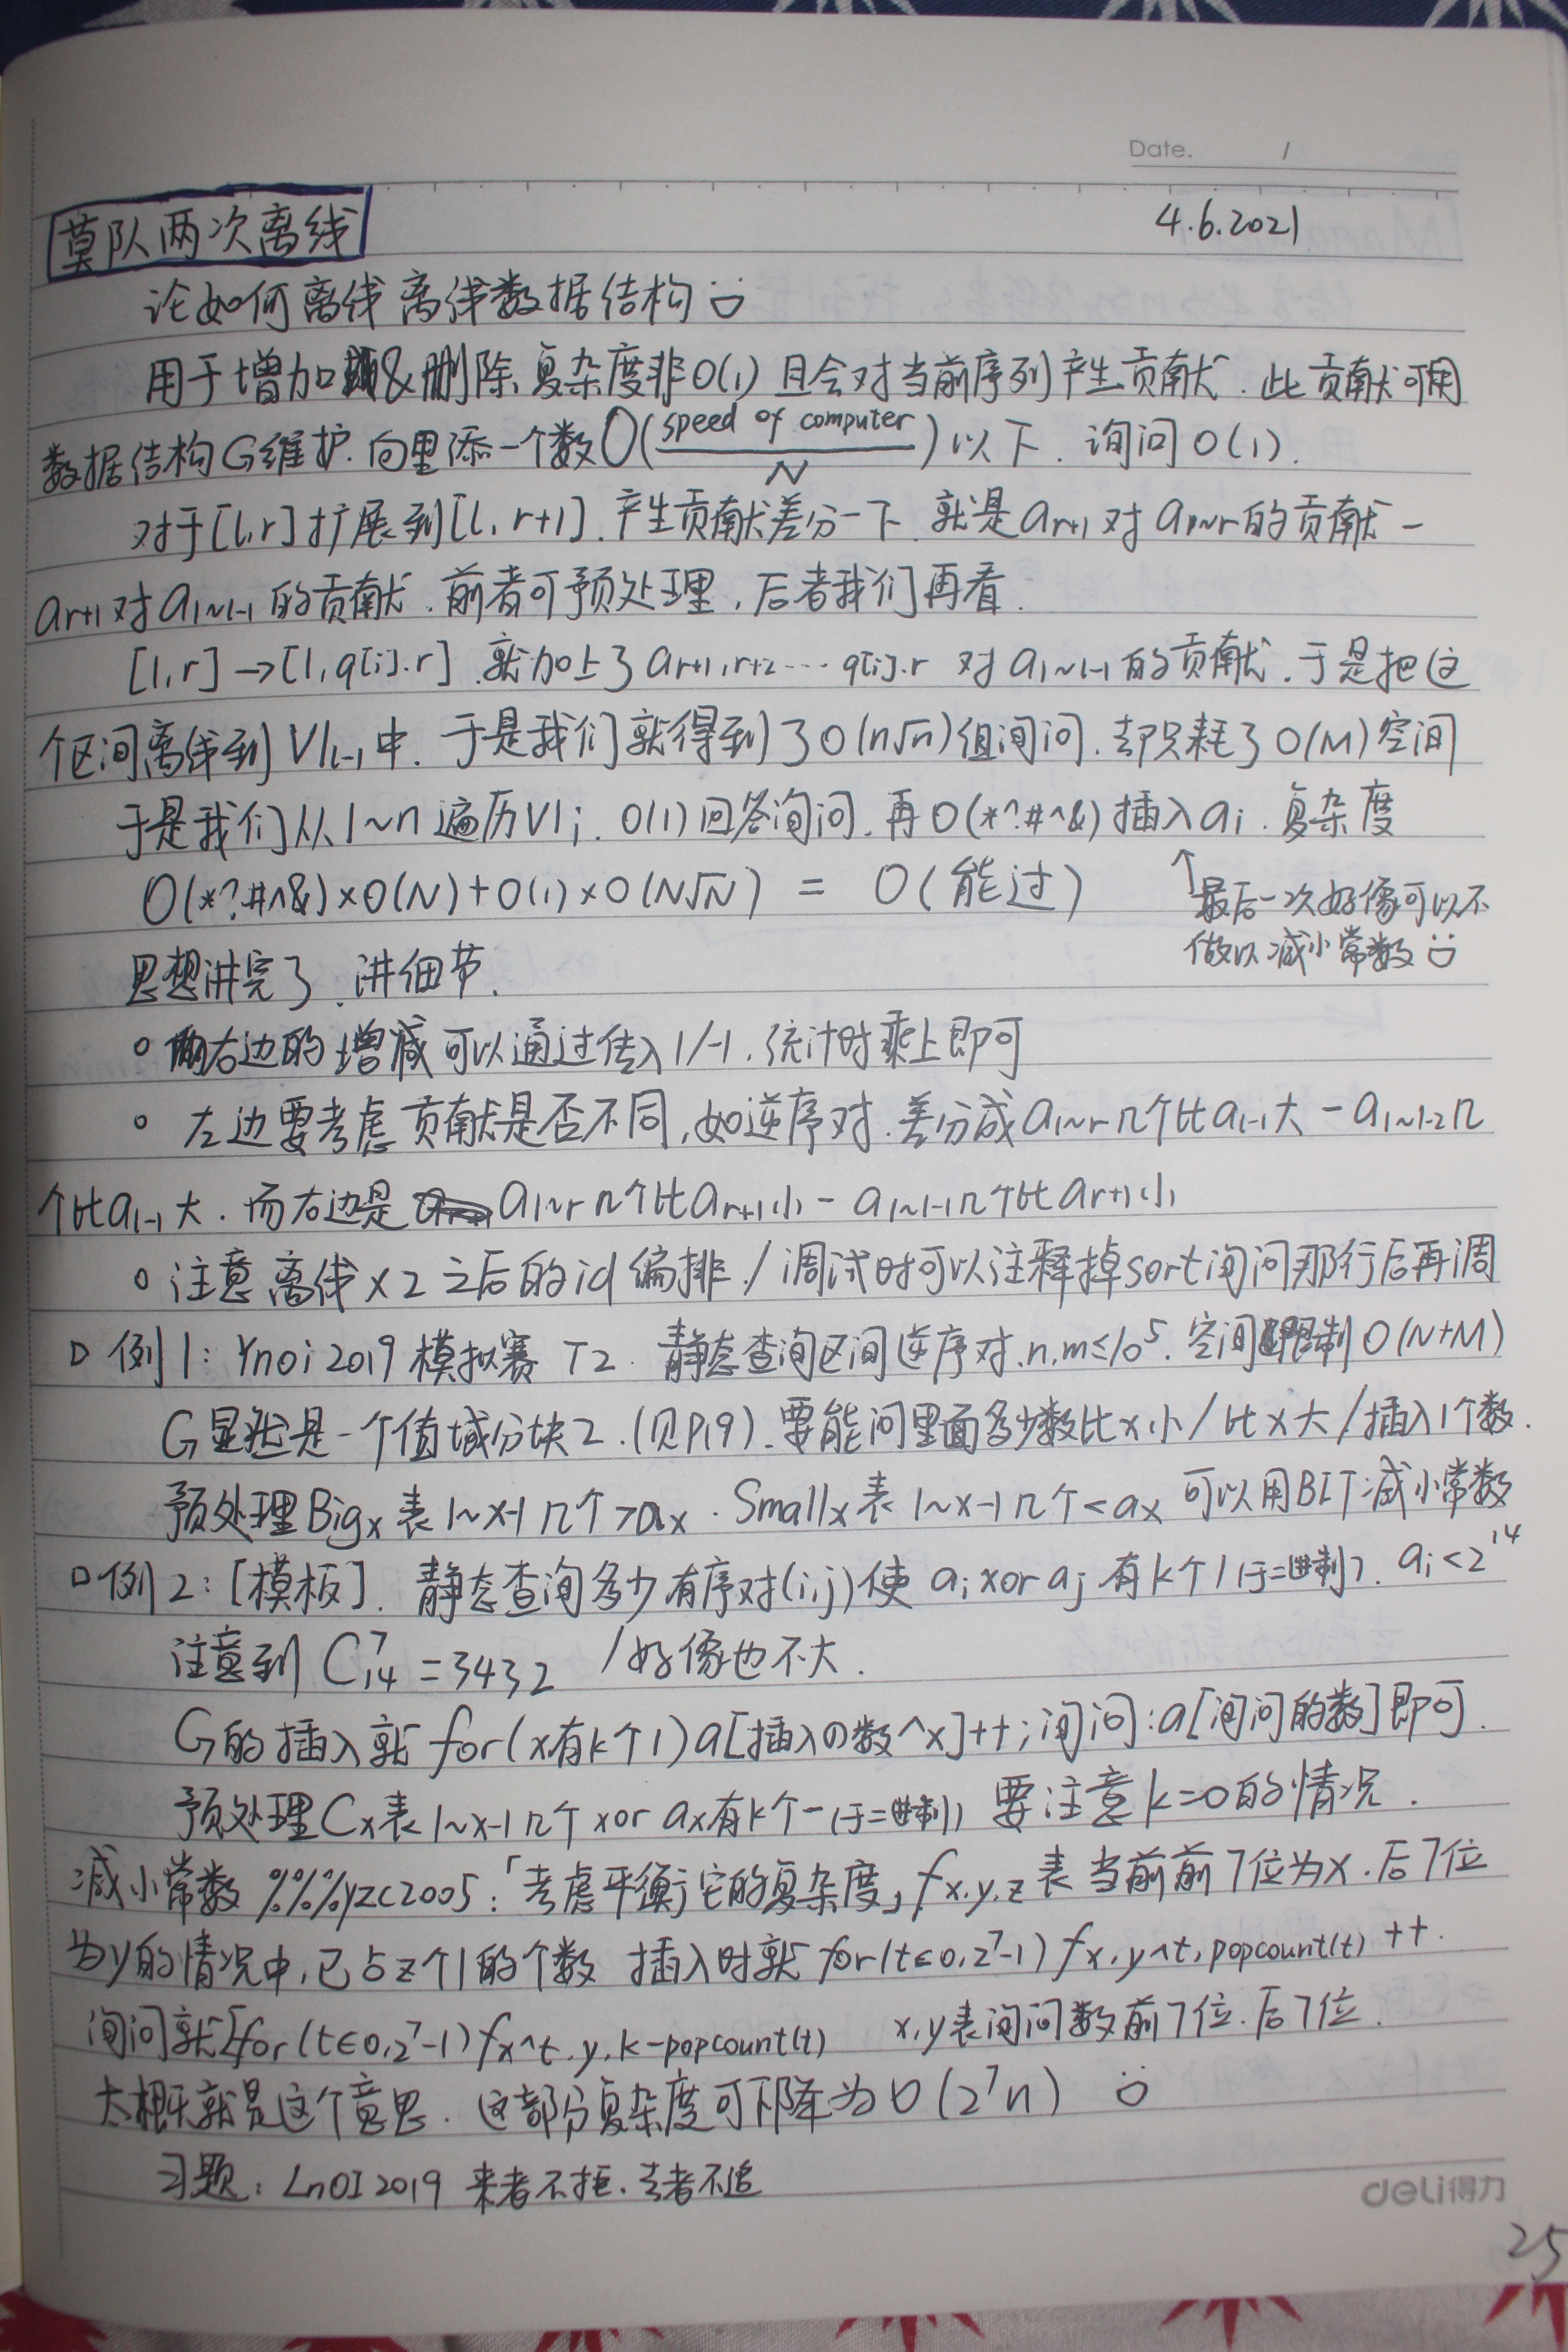 Date. /
莫队两次离线
4.6.2021
论如何离线离线数据结构
用于增加&删除复杂度非O(1) 且会对当前序列产生贡献.此贡献可用
数据结构G维护.向里添一个数O(speed of computer / N)以下.询问O(1).
对于[l,r]扩展到[l,r+1].产生贡献差分一下.就是a_{r+1}对a_{1~r}的贡献-
a_{r+1}对a_{1~l-1}的贡献.前者可预处理,后者我们再看.
[l,r]→[l,q[i].r].就加上了a_{r+1,r+2……q[i].r}对a_{1~l-1}的贡献.于是把这
个区间离线到V1_{l-1}中.于是我们就得到了O(n√n)组询问.却只耗了O(M)空间
于是我们从1~n遍历V1_i.O(1)回答询问.再O(*?#^&)插入a_i.复杂度
O(*?#^&)×O(N)+O(1)×O(N√N) = O(能过)
↑最后一次好像可以不
做以减小常数
思想讲完了.讲细节.
○ 右边的增减可以通过传入1/-1.统计时乘上即可
○ 左边要考虑贡献是否不同,如逆序对.差分成a_{1~r}几个比a_{l-1}大-a_{1~l-2}几
个比a_{l-1}大.而右边是a_{1~r}几个比a_{r+1}小-a_{1~l-1}几个比a_{r+1}小
○ 注意离线×2之后的id编排./调试时可以注释掉sort询问那行后再调
例1: Ynoi2019模拟赛 T2. 静态查询区间逆序对.n,m≤10^5.空间限制O(N+M)
G显然是一个值域分块2.(见P19).要能问里面多少数比x小/比x大/插入1个数.
预处理Big_x表1~x-1几个>a_x.Small_x表1~x-1几个<a_x 可以用BIT减小常数
例2:[模板].静态查询多少有序对(i,j)使a_i xor a_j有k个1(于二进制).a_i<2^14
注意到 C_14^7=3432 /好像也不大.
G的插入就for(x有k个1)a[插入の数^x]++;询问:a[询问的数]即可.
预处理C_x表1~x-1几个xor a_x有k个一(于二进制) 要注意k=0的情况.
减小常数 %%%yzc2005:「考虑平衡它的复杂度」f_{x,y,z}表当前前7位为x.后7位
为y的情况中,已占z个1的个数 插入时就for(t∈0,2^7-1)f_{x,y^t,popcount(t)}++.
询问就Σfor(t∈0,2^7-1)f_{x^t,y,k-popcount(t)} x,y表询问数前7位.后7位.
大概就是这个意思.这部分复杂度可下降为O(2^7n)
习题: LnOI2019 来者不拒.去者不追
deli得力
25